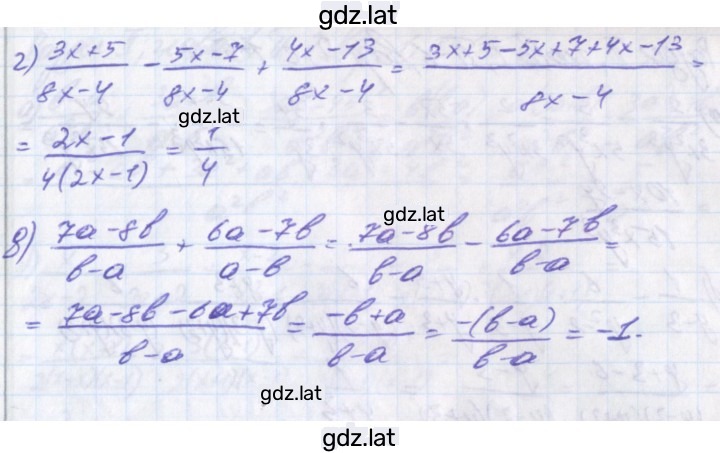 gdz.lat
2) (3x+5)/(8x-4) - (5x-7)/(8x-4) + (4x-13)/(8x-4) = (3x+5-5x+7+4x-13)/(8x-4) =
gdz.lat
= (2x-1)/(4(2x-1)) = 1/4
gdz.lat
8) (7a-8b)/(b-a) + (6a-7b)/(a-b) = (7a-8b)/(b-a) - (6a-7b)/(b-a) =
= (7a-8b-6a+7b)/(b-a) = (-b+a)/(b-a) = (-(b-a))/(b-a) = -1.
gdz.lat
gdz.lat